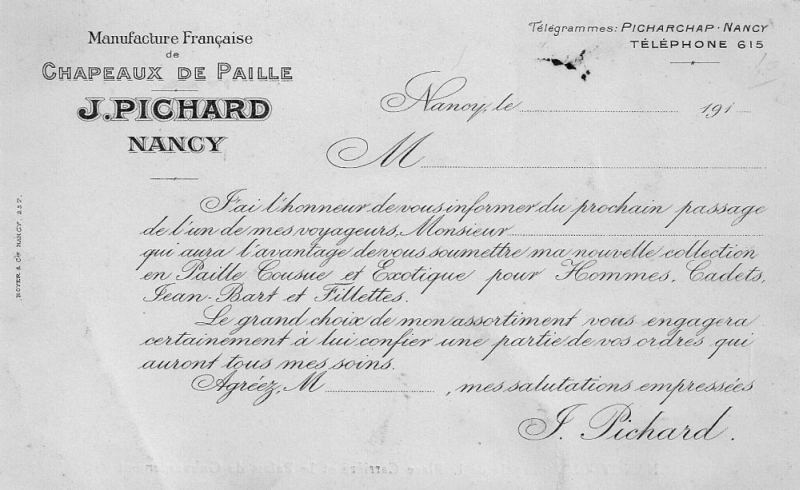 Manufacture Française
de
CHAPEAUX DE PAILLE
J. PICHARD
NANCY
Télégrammes: PICHARCHAP · NANCY
TÉLÉPHONE 615
Nancy, le 191
M
J'ai l'honneur de vous informer du prochain passage
de l'un de mes voyageurs, Monsieur
qui aura l'avantage de vous soumettre ma nouvelle collection
en Paille Cousue et Exotique pour Hommes, Cadets,
Jean-Bart et Fillettes.
Le grand choix de mon assortiment vous engagera
certainement à lui confier une partie de vos ordres qui
auront tous mes soins.
Agréez, M , mes salutations empressées
J. Pichard.
ROYER & Cie NANCY.